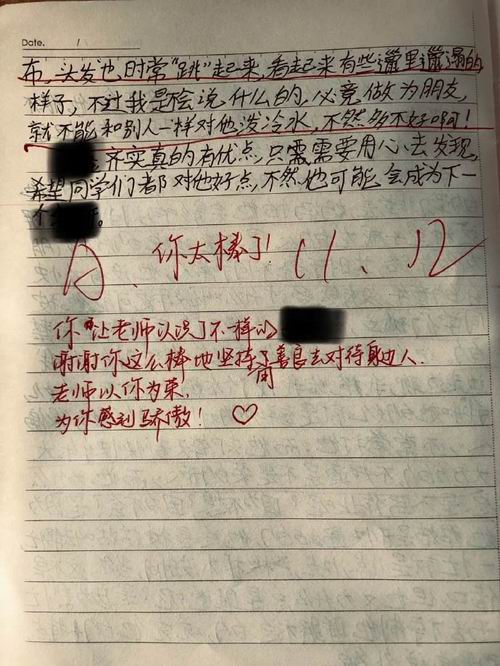 Date. /
布,头发也时常“跳”起来,看起来有些邋里邋遢的
样子,不过我是不会说什么的,必竟做为朋友,
就不能和别人一样对他泼冷水,不然多不好啊!
齐实真的有优点,只需需要用心去发现,
希望同学们都对他好点,不然他可能会成为下一
个 。
A. 你太棒了! 11.12
你让老师认识了不一样的
谢谢你这么棒地坚持用善良去对待身边人.
老师以你为荣,
为你感到骄傲! ♡